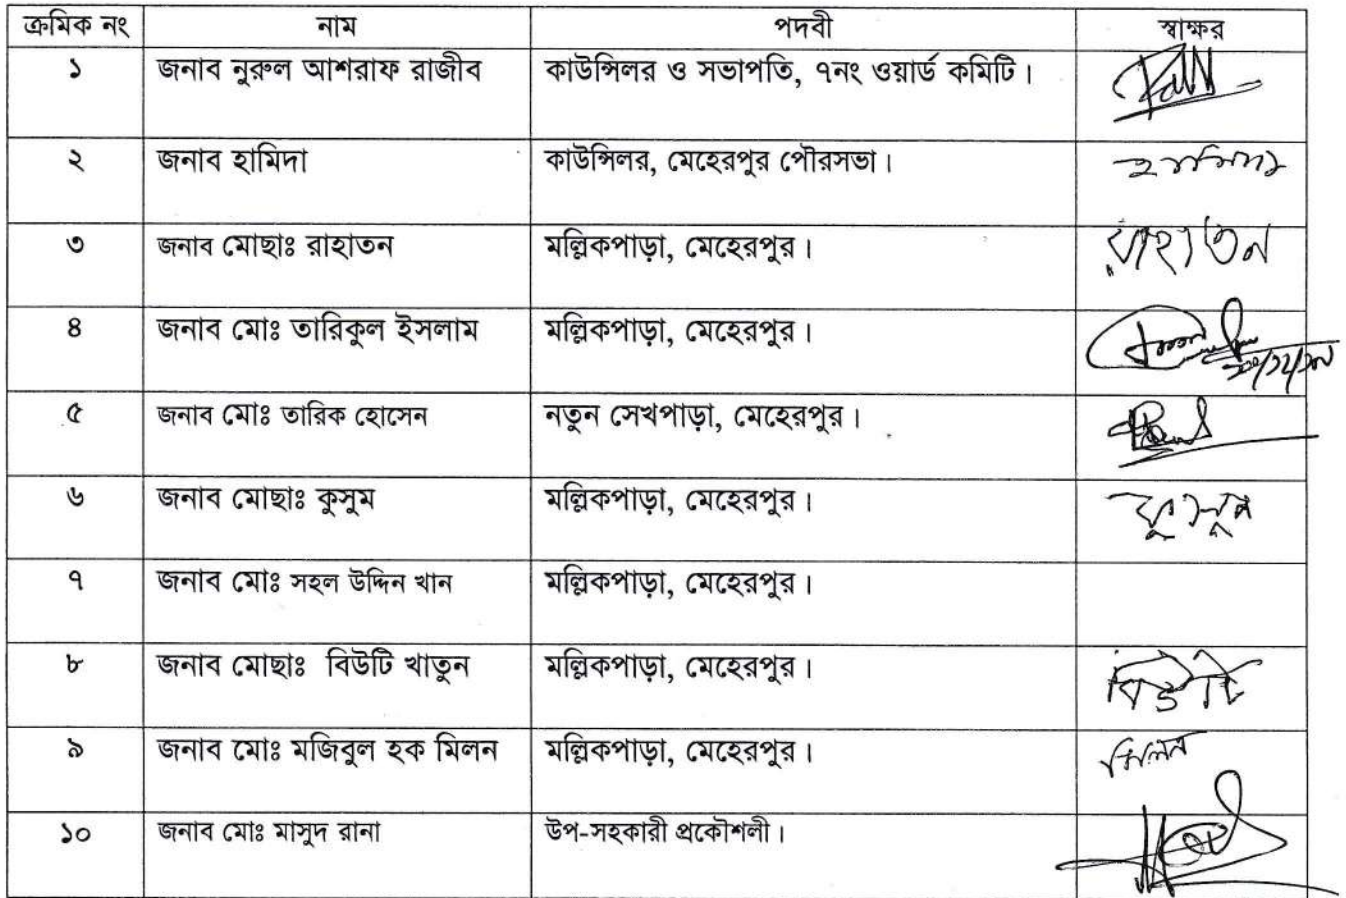 ক্রমিক নং নাম পদবী স্বাক্ষর
১ জনাব নুরুল আশরাফ রাজীব কাউন্সিলর ও সভাপতি, ৭নং ওয়ার্ড কমিটি।
২ জনাব হামিদা কাউন্সিলর, মেহেরপুর পৌরসভা। হামিদা
৩ জনাব মোছাঃ রাহাতন মল্লিকপাড়া, মেহেরপুর। রাহাতন
৪ জনাব মোঃ তারিকুল ইসলাম মল্লিকপাড়া, মেহেরপুর।
৫ জনাব মোঃ তারিক হোসেন নতুন সেখপাড়া, মেহেরপুর।
৬ জনাব মোছাঃ কুসুম মল্লিকপাড়া, মেহেরপুর। কুসুম
৭ জনাব মোঃ সহল উদ্দিন খান মল্লিকপাড়া, মেহেরপুর।
৮ জনাব মোছাঃ বিউটি খাতুন মল্লিকপাড়া, মেহেরপুর। বিউটি
৯ জনাব মোঃ মজিবুল হক মিলন মল্লিকপাড়া, মেহেরপুর। মিলন
১০ জনাব মোঃ মাসুদ রানা উপ-সহকারী প্রকৌশলী।